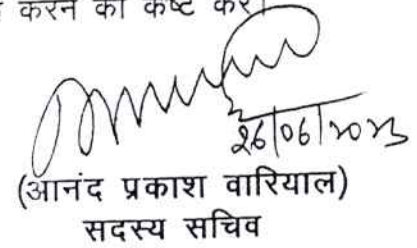 करने का कष्ट करें।
26/06/2023
(आनंद प्रकाश वारियाल)
सदस्य सचिव